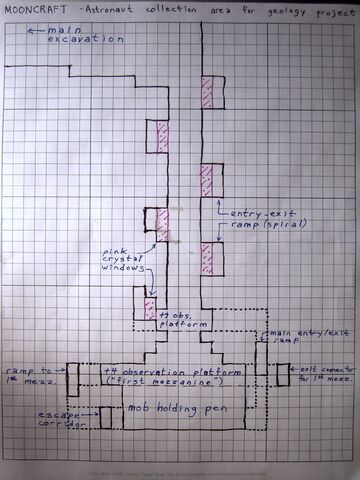 MOONCRAFT - Astronaut collection area for geology project
← main
excavation
entry-exit
ramp (spiral)
pink
crystal
windows
+9 obs.
platform
main entry/exit
ramp
ramp to
1st mezz.
+4 observation platform
("first mezzanine")
exit connector
for 1st mezz.
escape
corridor
mob holding pen